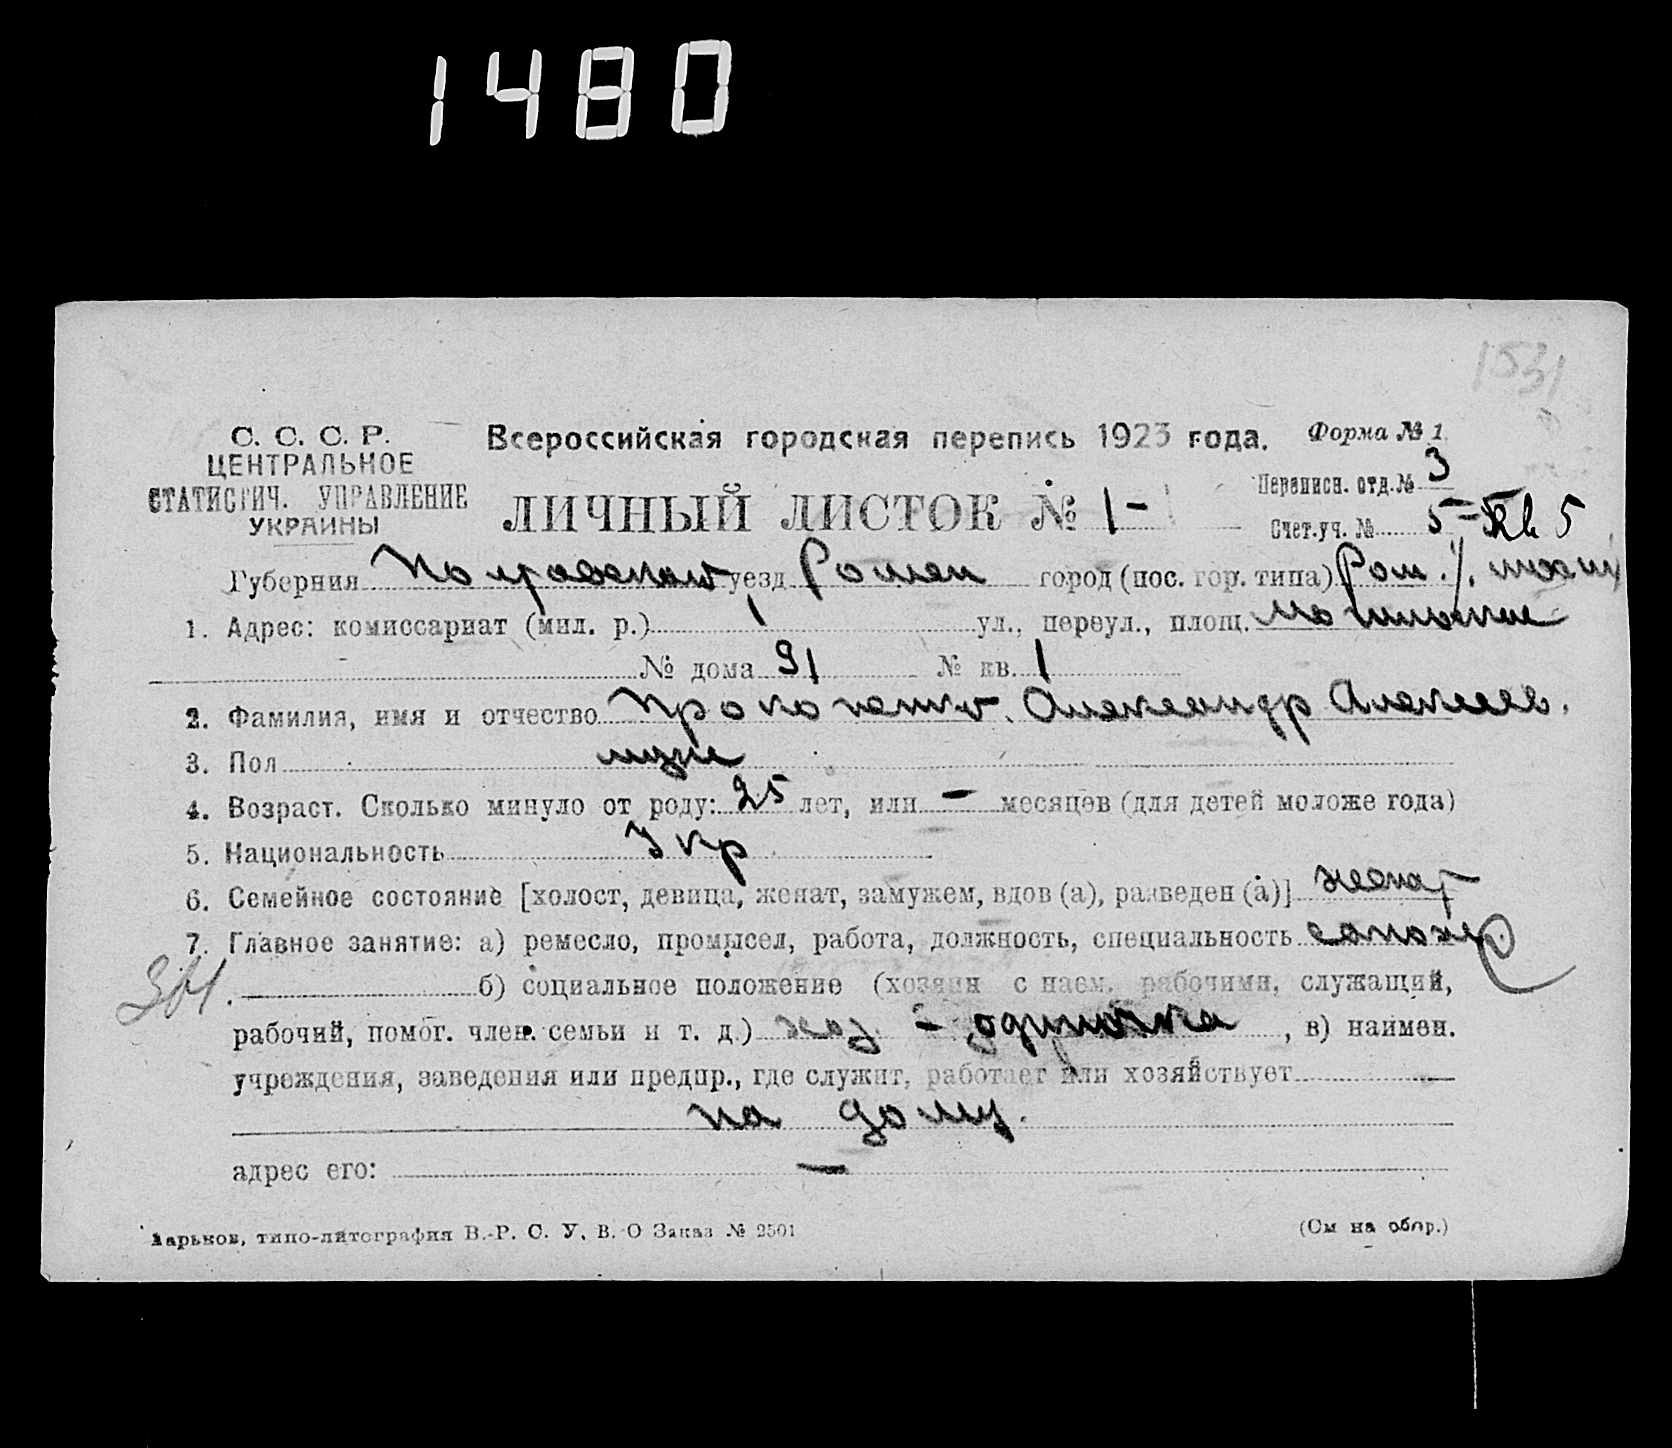 1480
1531
С. С. С. Р.
ЦЕНТРАЛЬНОЕ
СТАТИСТИЧ. УПРАВЛЕНИЕ
УКРАИНЫ
Всероссийская городская перепись 1923 года.
Форма № 1
ЛИЧНЫЙ ЛИСТОК № 1-
Переписн. отд. № 3
Счет. уч. № 5 - Кв 5
Губерния Полтавская уезд Ромен город (пос. гор. типа) Ром.
1. Адрес: комиссариат (мил. р.) 1 ул., переул., площ.
№ дома 91 № кв. 1
2. Фамилия, имя и отчество Александр Алексеев.
3. Пол муж
4. Возраст. Сколько минуло от роду: 25 лет, или — месяцев (для детей моложе года)
5. Национальность Укр
6. Семейное состояние [холост, девица, женат, замужем, вдов (а), разведен (а)] женат
7. Главное занятие: а) ремесло, промысел, работа, должность, специальность сапожн
б) социальное положение (хозяин с наем. рабочими, служащий,
рабочий, помог. член. семьи и т. д.) - одиночка, в) наимен.
учреждения, заведения или предпр., где служит, работает или хозяйствует
на дому.
адрес его: —
Харьков, типо-литография В.-Р. С. У. В. О Заказ № 2501
(См на обор.)